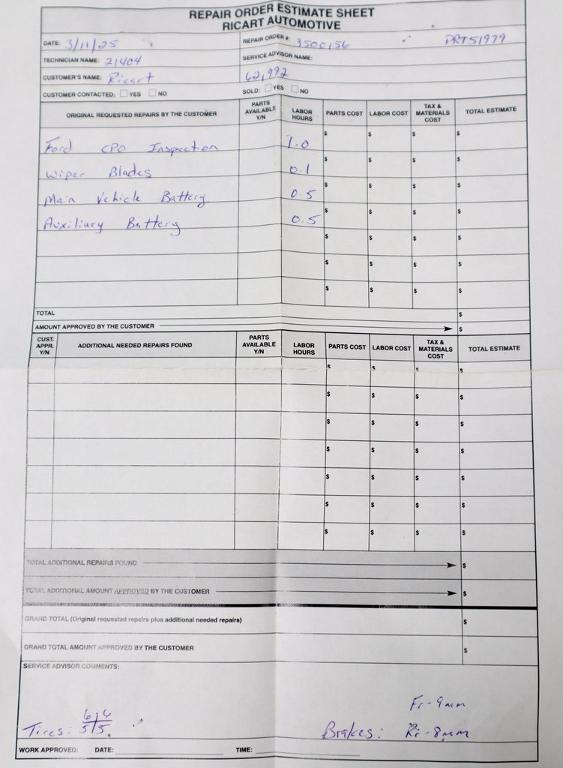 REPAIR ORDER ESTIMATE SHEET
RICART AUTOMOTIVE
DATE: 3/11/25 REPAIR ORDER #: 3500156 PRT51979
TECHNICIAN NAME: 21404 SERVICE ADVISOR NAME:
CUSTOMER'S NAME: Ricart 62,992
CUSTOMER CONTACTED: YES NO SOLD: YES NO
ORIGINAL REQUESTED REPAIRS BY THE CUSTOMER PARTS AVAILABLE Y/N LABOR HOURS PARTS COST LABOR COST TAX & MATERIALS COST TOTAL ESTIMATE
$ $ $ $
Ford CPO Inspection 1.0 $ $ $ $
Wiper Blades 0.1 $ $ $ $
Main Vehicle Battery 0.5 $ $ $ $
Auxiliary Battery 0.5 $ $ $ $
$ $ $ $
$ $ $ $
TOTAL $
AMOUNT APPROVED BY THE CUSTOMER $
CUST. APPR. Y/N ADDITIONAL NEEDED REPAIRS FOUND PARTS AVAILABLE Y/N LABOR HOURS PARTS COST LABOR COST TAX & MATERIALS COST TOTAL ESTIMATE
$ $ $ $
$ $ $ $
$ $ $ $
$ $ $ $
$ $ $ $
$ $ $ $
$ $ $ $
TOTAL ADDITIONAL REPAIRS FOUND $
TOTAL ADDITIONAL AMOUNT APPROVED BY THE CUSTOMER $
GRAND TOTAL (Original requested repairs plus additional needed repairs) $
GRAND TOTAL AMOUNT APPROVED BY THE CUSTOMER $
SERVICE ADVISOR COMMENTS:
Fr - 9mm
6 6
Tires: 5 5 Brakes: Rr - 8mm
WORK APPROVED: DATE: TIME: